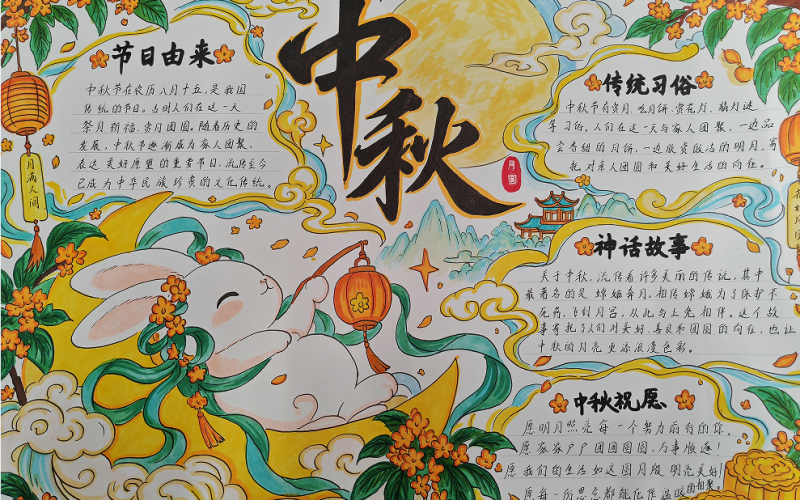 中秋
月圆
节日由来
中秋节在农历八月十五,是我国
传统的节日。古时人们在这一天
祭月祈福、赏月团圆。随着历史的
发展,中秋节逐渐成为家人团聚、
表达美好愿望的重要节日,流传至今
已成为中华民族珍贵的文化传统。
月满人间
传统习俗
中秋节有赏月、吃月饼、赏花灯、猜灯谜
等习俗。人们在这一天与家人团聚,一边品
尝香甜的月饼,一边欣赏皎洁的明月。寄
托对亲人团圆和美好生活的向往。
神话故事
关于中秋,流传着许多美丽的传说,其中
最著名的是嫦娥奔月。相传嫦娥为了保护不
死药,飞到月宫,从此与玉兔相伴。这个故
事寄托了人们对美好、善良和团圆的向往,也让
中秋的月亮更添浪漫色彩。
中秋祝愿
愿明月照亮每一个努力前行的你,
愿家家户户团团圆圆,万事顺遂!
愿我们的生活如这圆月般明亮美好!
愿每一份思念都能化作温暖的相聚。